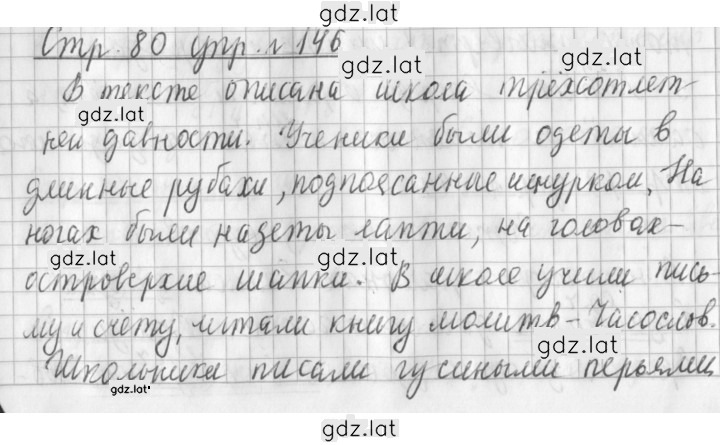 gdz.lat
Стр. 80 упр. № 146
gdz.lat
gdz.lat
В тексте описана школа трёхсотлет-
ней давности. Ученики были одеты в
длинные рубахи, подпоясанные шнурком. На
ногах были надеты лапти, на головах-
gdz.lat
gdz.lat
островерхие шапки. В школе учили пись-
му и счёту, читали книгу молитв - Часослов.
gdz.lat
gdz.lat
Школьники писали гусиными перьями
gdz.lat
gdz.lat